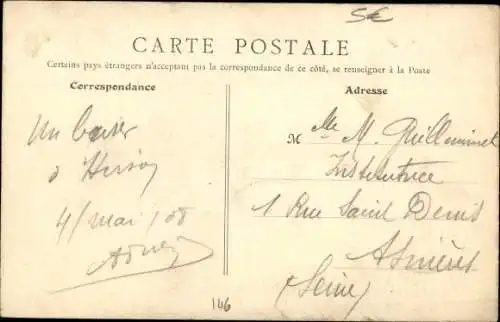 5€
CARTE POSTALE
Certains pays étrangers n'acceptant pas la correspondance de ce côté, se renseigner à la Poste
Correspondance
Adresse
Un baiser
4/ mai / 08
M lle M. Guilleminet
Institutrice
1 Rue Saint Denis
Asnières
(Seine)
146